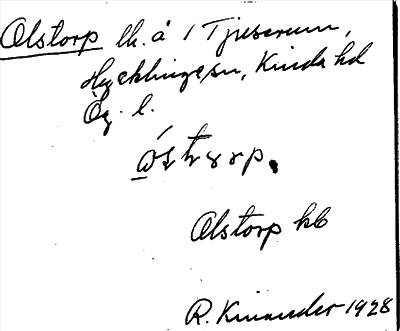 Olstorp lh. å 1 Tjuserum,
Hycklinge sn, Kinda hd
Ög. l.
ὤstrɤp.
Olstorp kb
R. Kinander 1928